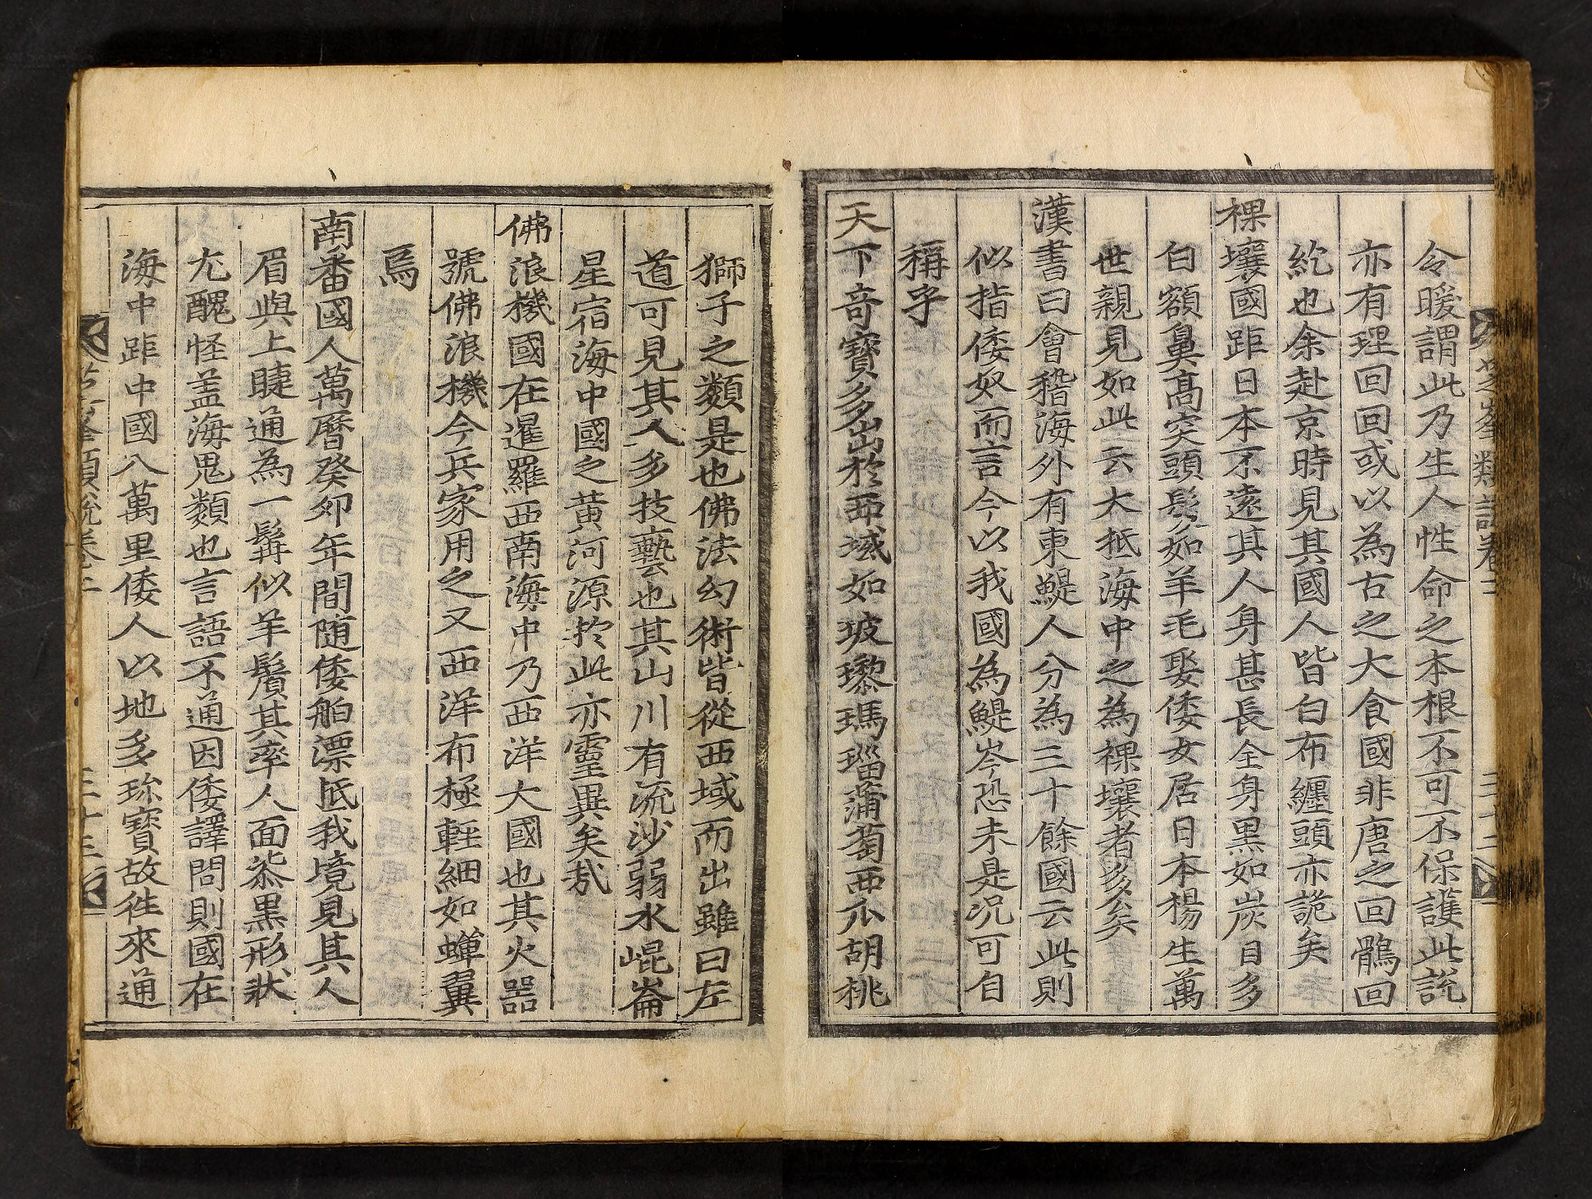 芝峯類說卷二
令暖謂此乃生人性命之本根不可不保護此說
亦有理回回或以為古之大食國非唐之回鶻回
紇也余赴京時見其國人皆白布纏頭亦詭矣
裸壤國距日本不遠其人身甚長全身黑如炭目多
白額鼻高突頭髮如羊毛娶倭女居日本楊生萬
世親見如此云大抵海中之為裸壤者多矣
漢書曰會稽海外有東鯷人分為三十餘國云此則
似指倭奴而言今以我國為鯷岑恐未是况可自
稱乎
天下奇寶多出於西域如坡瓈瑪瑙蒲萄西瓜胡桃
獅子之類是也佛法幻術皆從西域而出雖曰左
道可見其人多技藝也其山川有流沙弱水崐崙
星宿海中國之黄河源於此亦靈異矣哉
佛浪機國在暹羅西南海中乃西洋大國也其火器
號佛浪機今兵家用之又西洋布極輕細如蟬翼
焉
南番國人萬曆癸卯年間随倭舶漂抵我境見其人
眉與上睫通為一髯似羊鬚其率人面柒黒形狀
尤醜怪盖海鬼類也言語不通因倭譯問則國在
海中距中國八萬里倭人以地多珎寳故徃來通
芝峯類說卷二
三十三